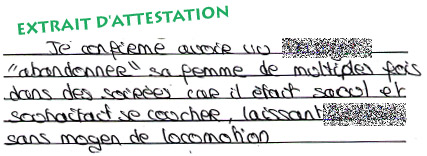 EXTRAIT D'ATTESTATION
Je confirme avoir vu
"abandonner" sa femme de multiples fois
dans des soirées car il était saoul et
souhaitait se coucher, laissant
sans moyen de locomotion